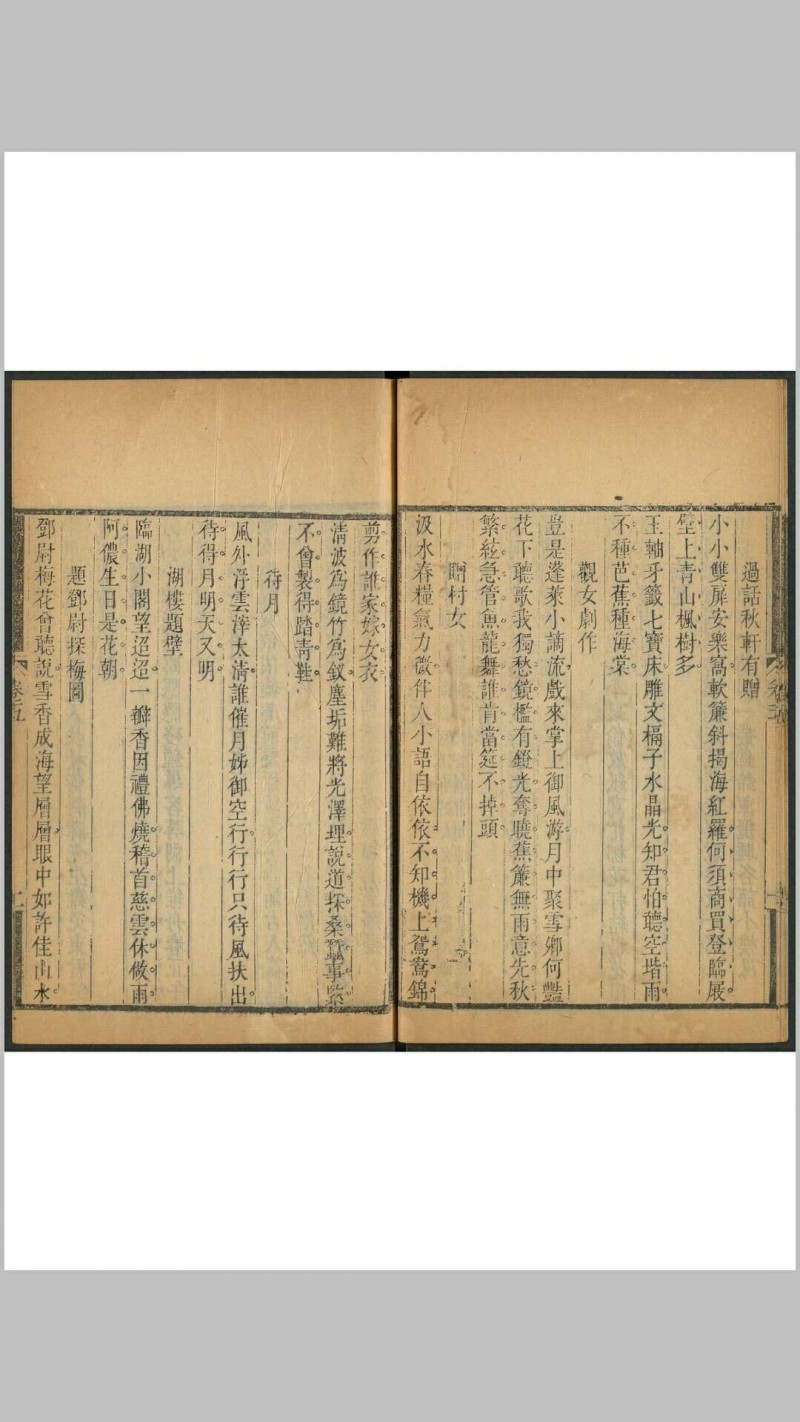 過話秋軒有贈
小小雙屏安樂窩軟簾斜揭海紅羅何須商買登臨展
壁上青山楓樹多
玉軸牙籤七寶床雕文槅子水晶光知君怕聽空堦雨
不種芭蕉種海棠
觀女劇作
豈是蓬萊小謫流戲來掌上御風游月中聚雪鄉何豔
花下聽歌我獨愁鏡檻有鐙光奪曉蕉簾無雨意先秋
繁絃急管魚龍舞誰肯當筵不掉頭
贈村女
汲水舂糧氣力微伴人小語自依依不知機上鴛鴦錦
剪作誰家嫁女衣
清波爲鏡竹爲釵塵垢難將光澤理說道採桑蠶事緊
不曾製得踏青鞋
待月
風外浮雲滓太清誰催月姊御空行行行只待風扶出
待得月明天又明
湖樓題壁
臨湖小閣望迢迢一瓣香因禮佛燒稽首慈雲休做雨
阿儂生日是花朝
題鄧尉探梅圖
鄧尉梅花曾聽說雪香成海望層層眼中如許佳山水
卷五
二